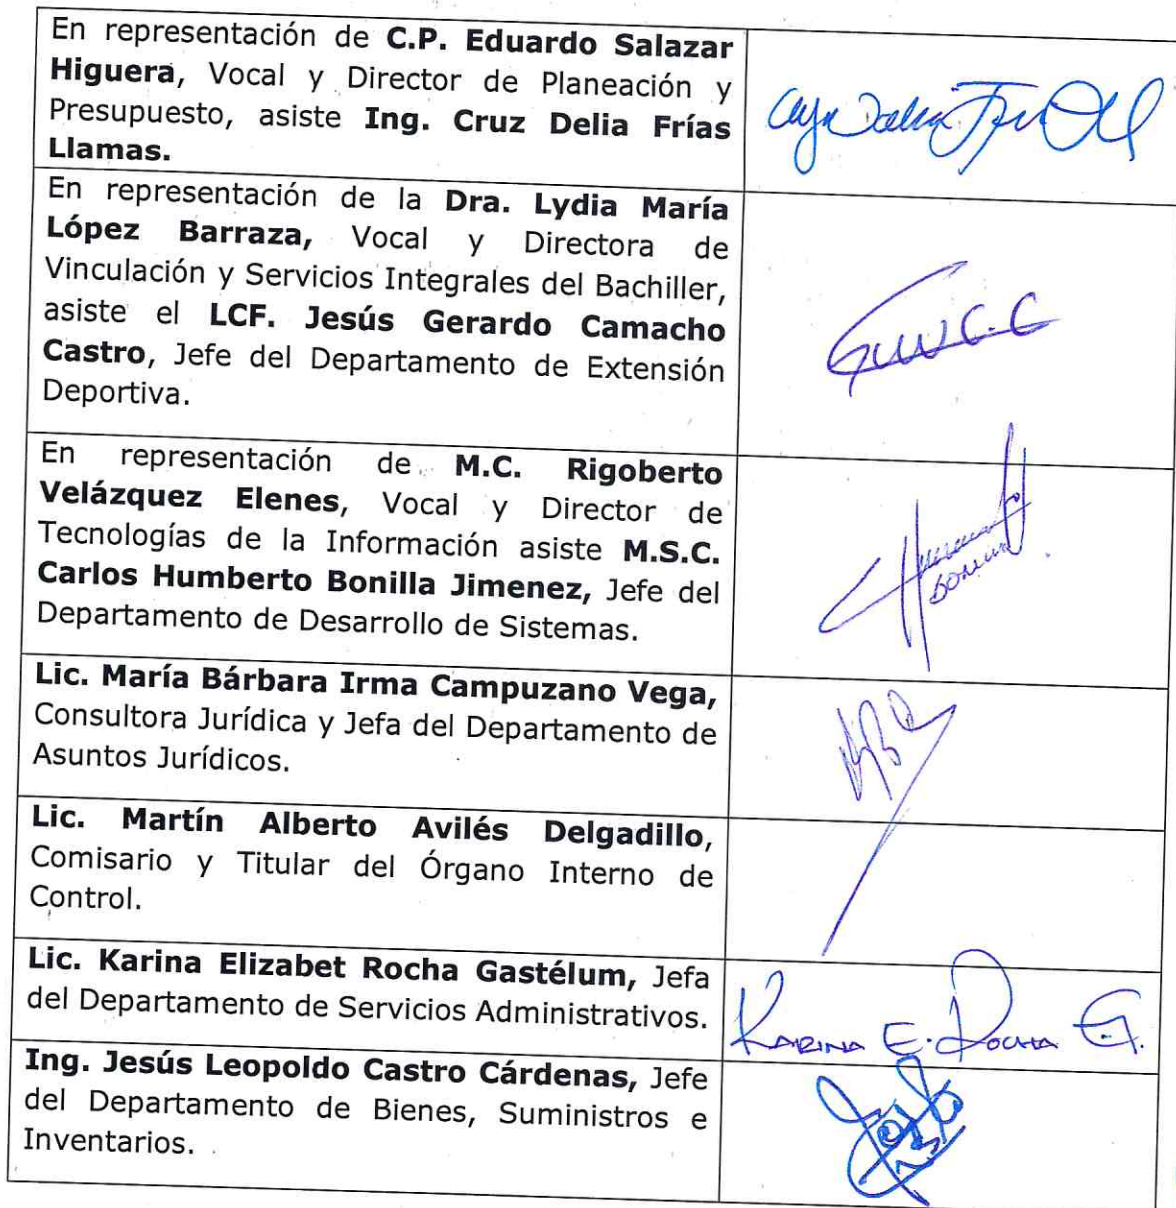 En representación de C.P. Eduardo Salazar
Higuera, Vocal y Director de Planeación y
Presupuesto, asiste Ing. Cruz Delia Frías
Llamas.
En representación de la Dra. Lydia María
López Barraza, Vocal y Directora de
Vinculación y Servicios Integrales del Bachiller,
asiste el LCF. Jesús Gerardo Camacho
Castro, Jefe del Departamento de Extensión
Deportiva.
En representación de M.C. Rigoberto
Velázquez Elenes, Vocal y Director de
Tecnologías de la Información asiste M.S.C.
Carlos Humberto Bonilla Jimenez, Jefe del
Departamento de Desarrollo de Sistemas.
Lic. María Bárbara Irma Campuzano Vega,
Consultora Jurídica y Jefa del Departamento de
Asuntos Jurídicos.
Lic. Martín Alberto Avilés Delgadillo,
Comisario y Titular del Órgano Interno de
Control.
Lic. Karina Elizabet Rocha Gastélum, Jefa
del Departamento de Servicios Administrativos.
KARINA E. ROCHA G.
Ing. Jesús Leopoldo Castro Cárdenas, Jefe
del Departamento de Bienes, Suministros e
Inventarios.